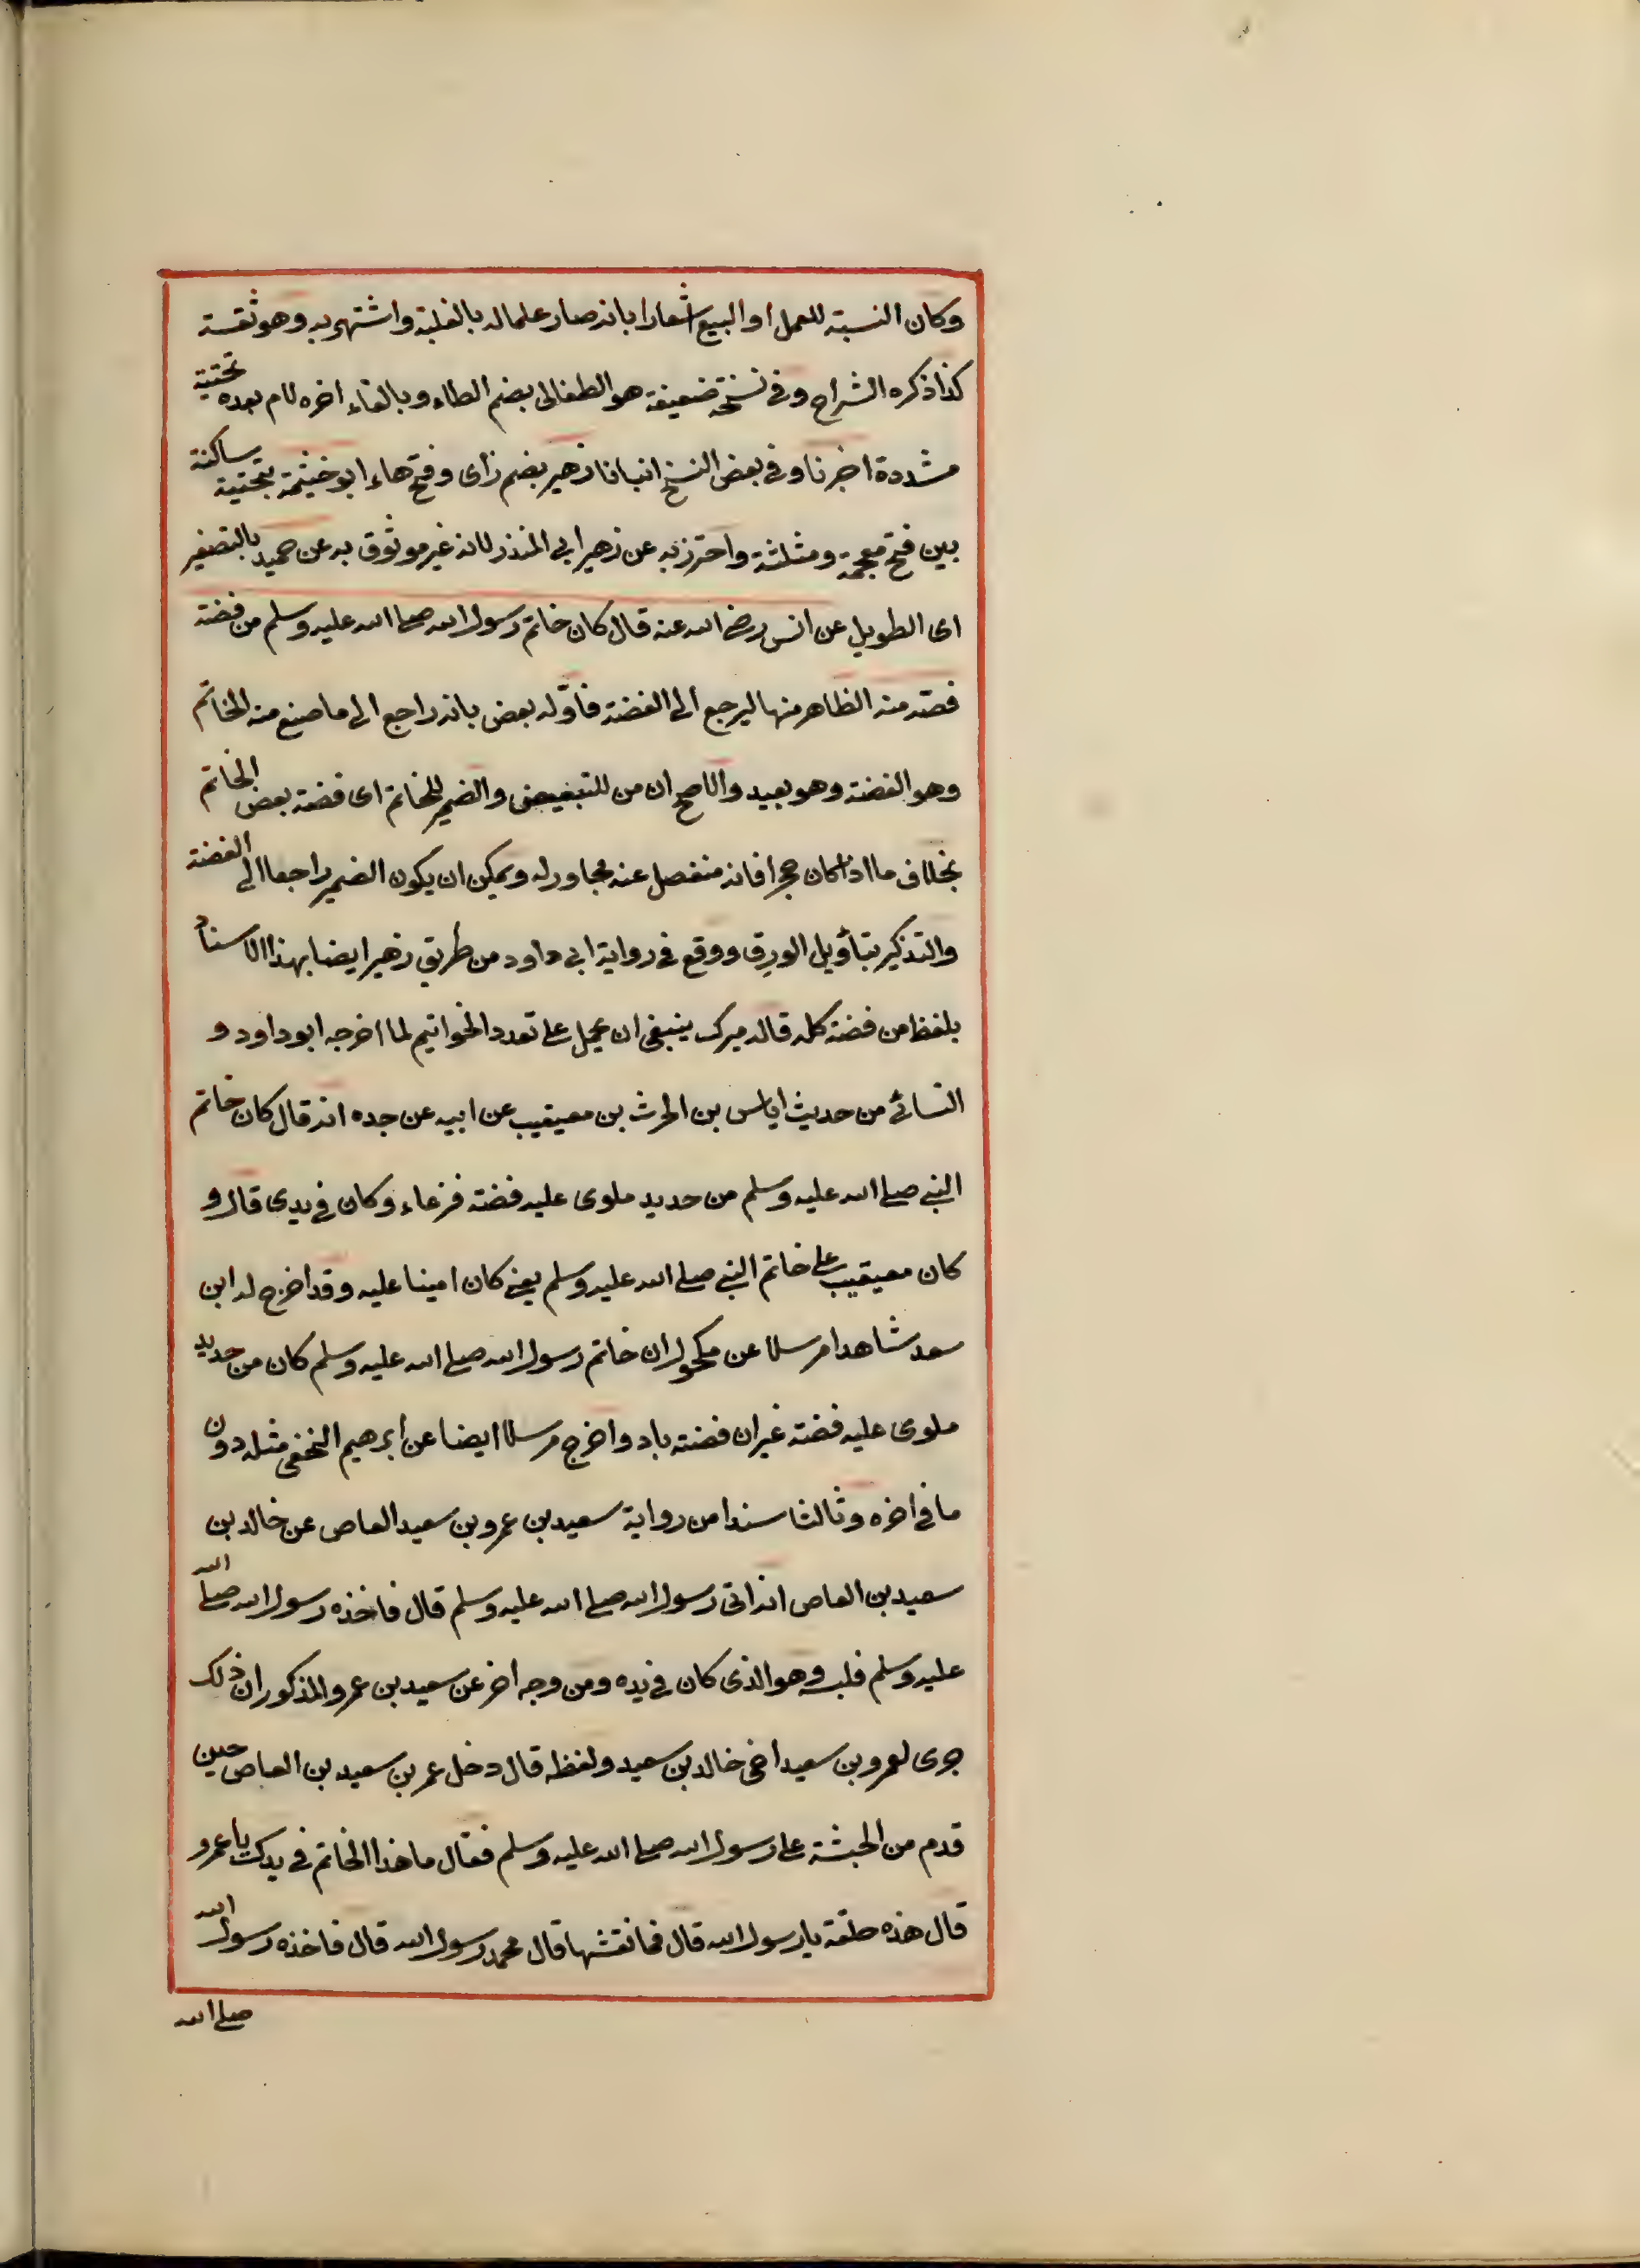 وكان النسبة للعمل او البيع اشعارا بانه صار علما له بالغلبة واشتهر به وهو ثقة
كذا ذكره الشراح وفي نسخة ضعيفة هو الطفالى بضم الطاء وبالفاء اخره لام بعده تحتية
مشددة اخبرنا وفي بعض النسخ انبانا زهير بضم زاى وفتح هاء ابو خيثمة بتحتية ساكنة
بين فتح معجمة ومثلثة واحترز به عن زهير ابى المنذر لانه غير موثوق به عن حميد بالتصغير
اى الطويل عن انس رضى الله عنه قال كان خاتم رسول الله صلى الله عليه وسلم من فضة
فصّه منه الظاهر منها ليرجع الى الفضة فاوّله بعض بانه راجع الى ما صنع منه الخاتم
وهو الفضة وهو بعيد والاصح ان من للتبعيض والضمير للخاتم اى فضة بعض الخاتم
بخلاف ما اذا كان حجرا فانه منفصل عنه مجاور له ويمكن ان يكون الضمير راجعا الى الفضة
والتذكير بتأويل الورق ووقع في رواية ابى داود من طريق زهير ايضا بهذا الاسناد
بلفظ من فضة كله قال ميرك ينبغى ان يحمل على تعدد الخواتيم لما اخرجه ابو داود و
النسائى من حديث اياس بن الحرث بن معيقيب عن ابيه عن جده انه قال كان خاتم
النبى صلى الله عليه وسلم من حديد ملوى عليه فضة فزعاء وكان في يدى قال و
كان معيقيب على خاتم النبى صلى الله عليه وسلم يعنى كان امينا عليه وقد اخرج له ابن
سعد شاهدا مرسلا عن مكحول ان خاتم رسول الله صلى الله عليه وسلم كان من حديد
ملوى عليه فضة غير ان فضته باد واخرج مرسلا ايضا عن ابرهيم النخعى مثله دون
ما في اخره وثالثا سندا من رواية سعيد بن عمرو بن سعيد العاص عن خالد بن
سعيد بن العاص انه اتى رسول الله صلى الله عليه وسلم قال فاخذه رسول الله صلى الله
عليه وسلم فلبسه وهو الذى كان في يده ومن وجه اخر عن سعيد بن عمرو المذكور ان ذلك
جرى لعمرو بن سعيد اخى خالد بن سعيد ولفظه قال دخل عمر بن سعيد بن العاص حين
قدم من الحبشة على رسول الله صلى الله عليه وسلم فقال ما هذا الخاتم في يدك يا عمرو
قال هذه حلقة يا رسول الله قال فما نقشها قال محمد رسول الله قال فاخذه رسول الله
صلى الله